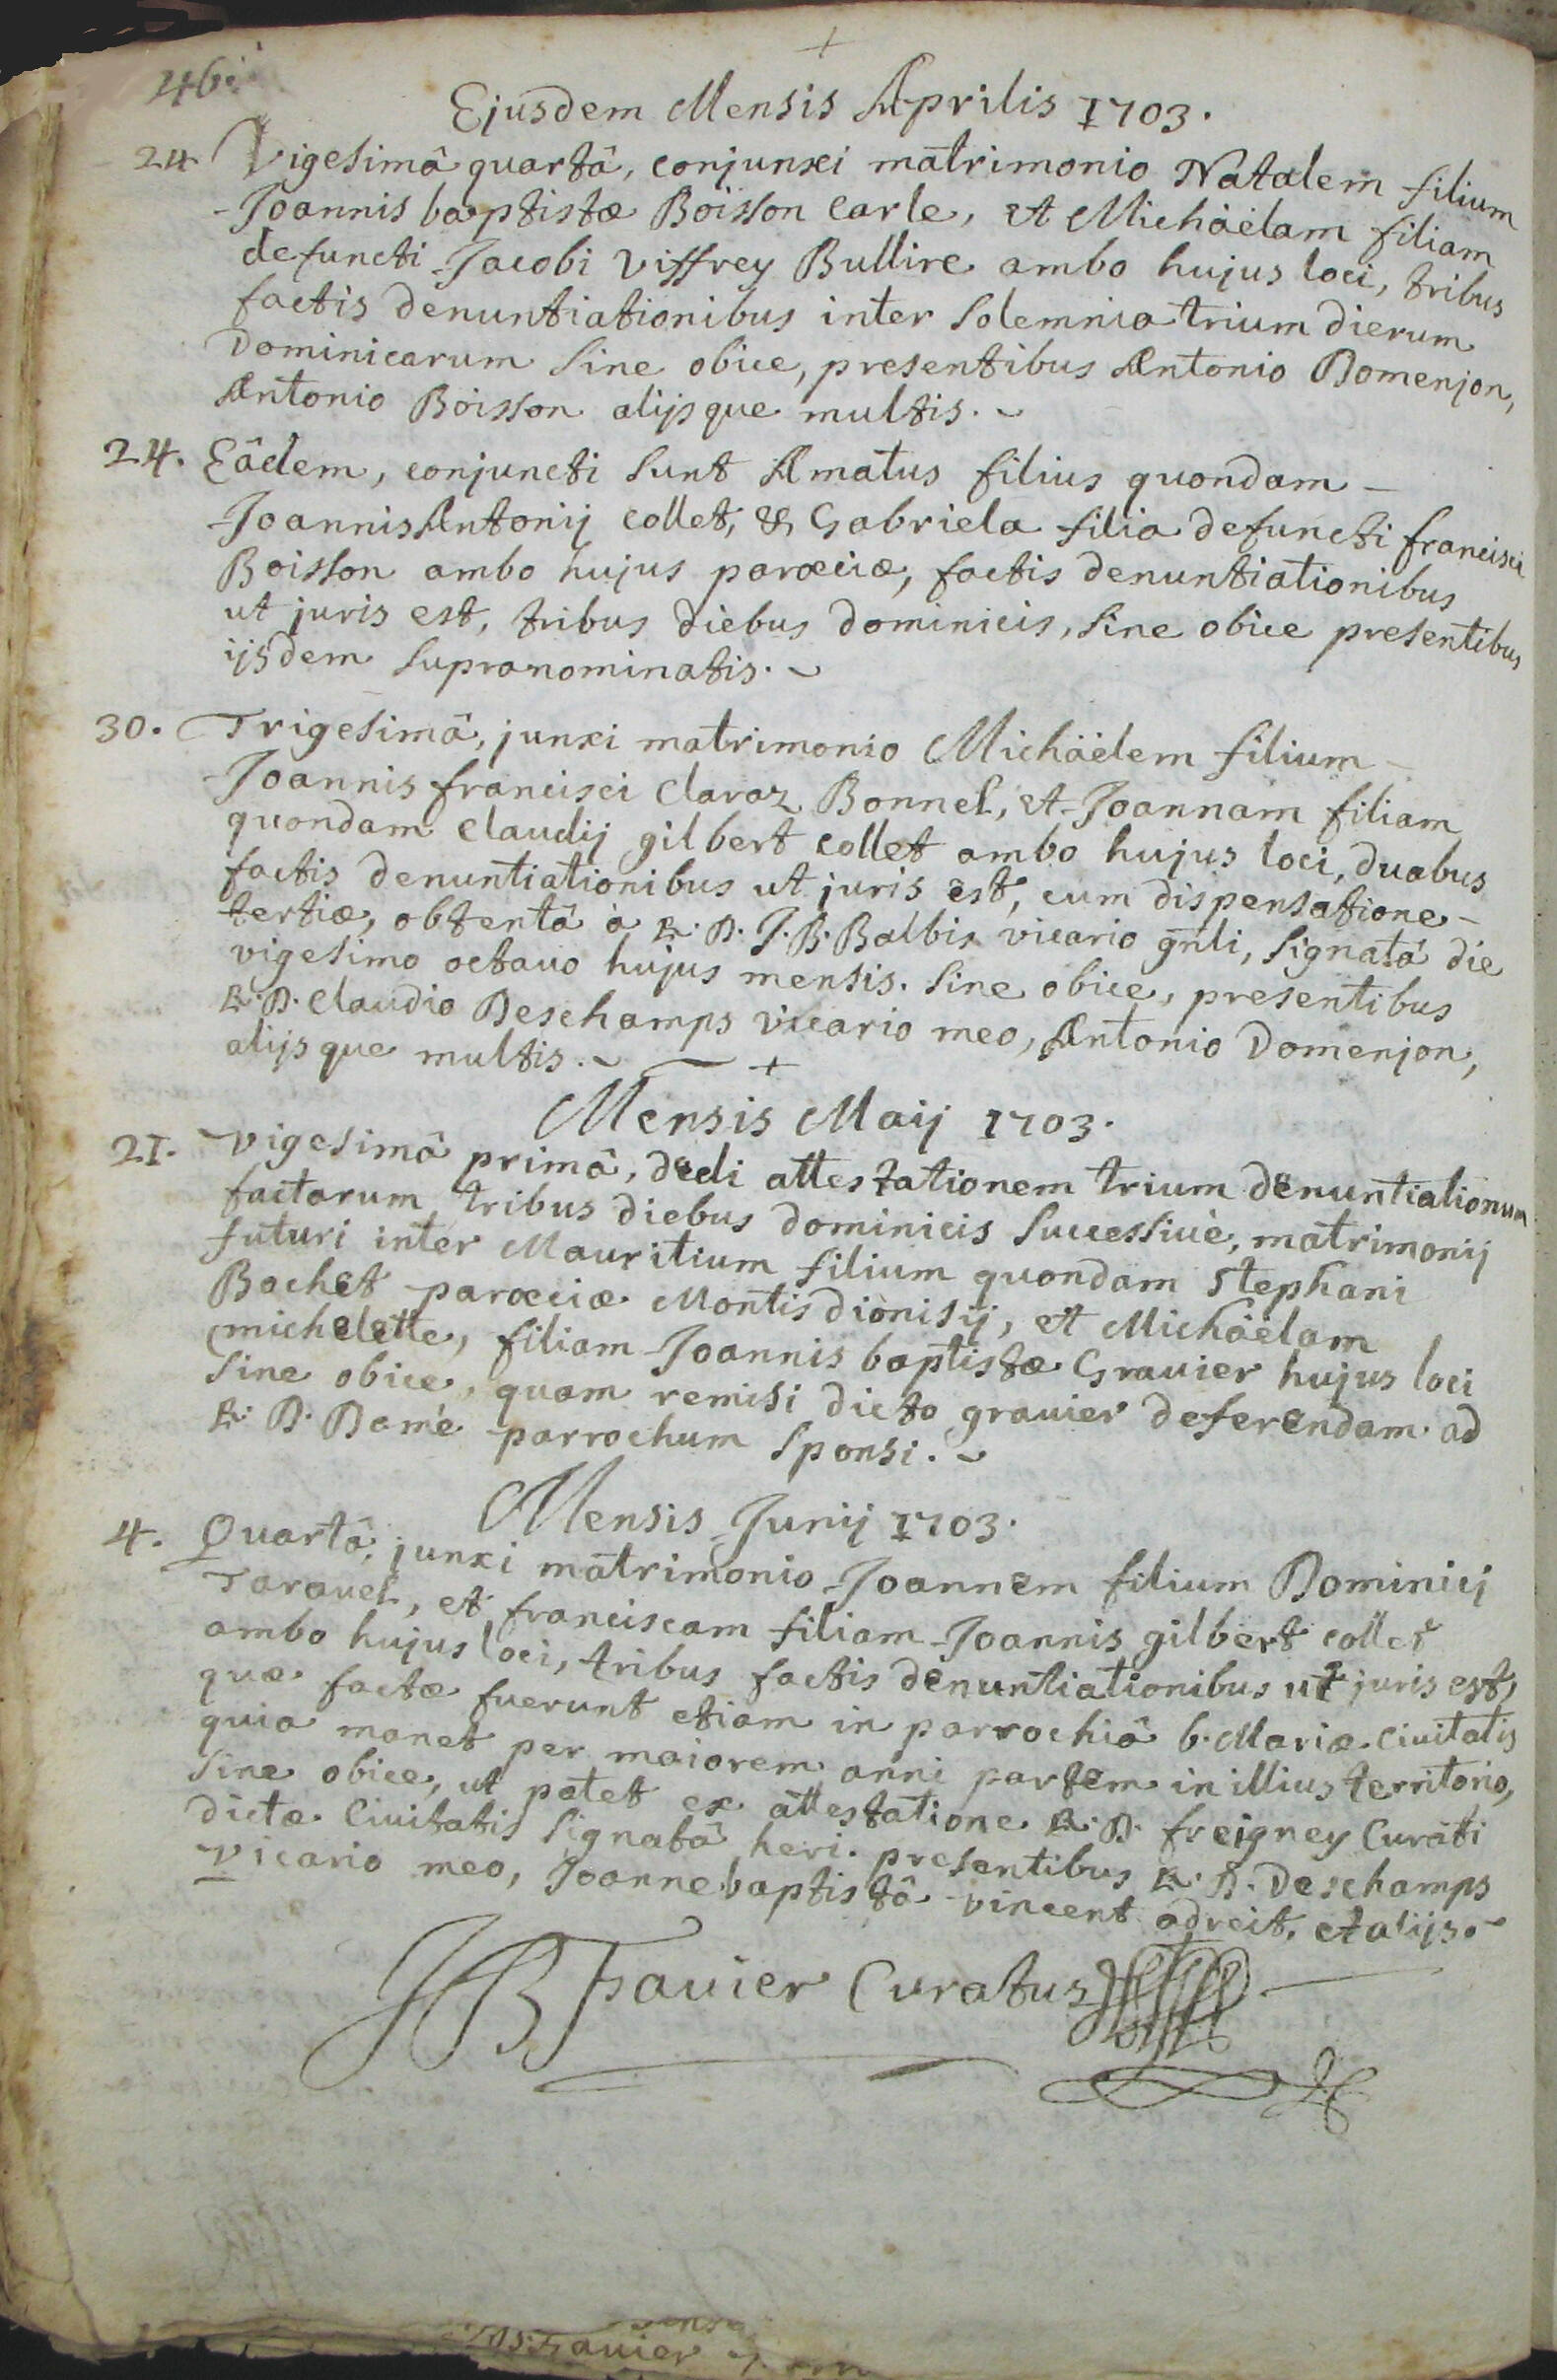 +
46.
Ejusdem Mensis Aprilis 1703.
24 Vigesimâ quartâ, conjunxi matrimonio Natalem filium
Joannis baptistæ Boisson carle, et Michäelam filiam
defuncti Jacobi Viffrey Bullire ambo hujus loci, tribus
factis denuntiationibus inter solemnia trium dierum
Dominicarum sine obice, presentibus Antonio Domenjon,
Antonio Boisson alijsque multis.
24. Eâdem, conjuncti sunt Amatus filius quondam
Joannis Antonij collet, & Gabriela filia defuncti francisci
Boisson ambo hujus parœciæ, factis denuntiationibus
ut juris est, tribus diebus dominicis, sine obice presentibus
ijsdem supranominatis.
30. Trigesimâ, junxi matrimonio Michäelem filium
Joannis francisci Claraz Bonnel, et Joannam filiam
quondam Claudij gilbert collet ambo hujus loci, duabus
factis denuntiationibus ut juris est, cum dispensatione
tertiæ, obtentâ à R. D. J. B. Balbis vicario gñli, signatâ die
vigesimo octavo hujus mensis. sine obice, presentibus
R. D. Claudio Deschamps vicario meo, Antonio Domenjon,
alijsque multis.
+
Mensis Maij 1703.
21. Vigesimâ primâ, dedi attestationem trium denuntiationum
factarum tribus diebus dominicis successiuè, matrimonij
futuri inter Mauritium filium quondam Stephani
Bochet parœciæ Montis dionisij, et Michäelam
michelette, filiam Joannis baptistæ Grauier hujus loci
sine obice, quam remisi dicto grauier deferendam ad
R. D. Damé parrochum sponsi.
Mensis Junij 1703.
4. Quartâ, junxi matrimonio Joannem filium Dominicj
Tarauel, et franciscam filiam Joannis gilbert collet
ambo hujus loci, tribus factis denuntiationibus ut juris est,
quæ factæ fuerunt etiam in parrochiâ b. Mariæ Ciuitatis
quia manet per maiorem anni partem in illius territorio,
sine obice, ut patet ex attestatione R. D. freigney Curati
dictæ Ciuitatis signatâ heri. presentibus R. D. Deschamps
vicario meo, Joanne baptistâ vincent adreit, et alijs.
JB Fauier Curatus
Fauier